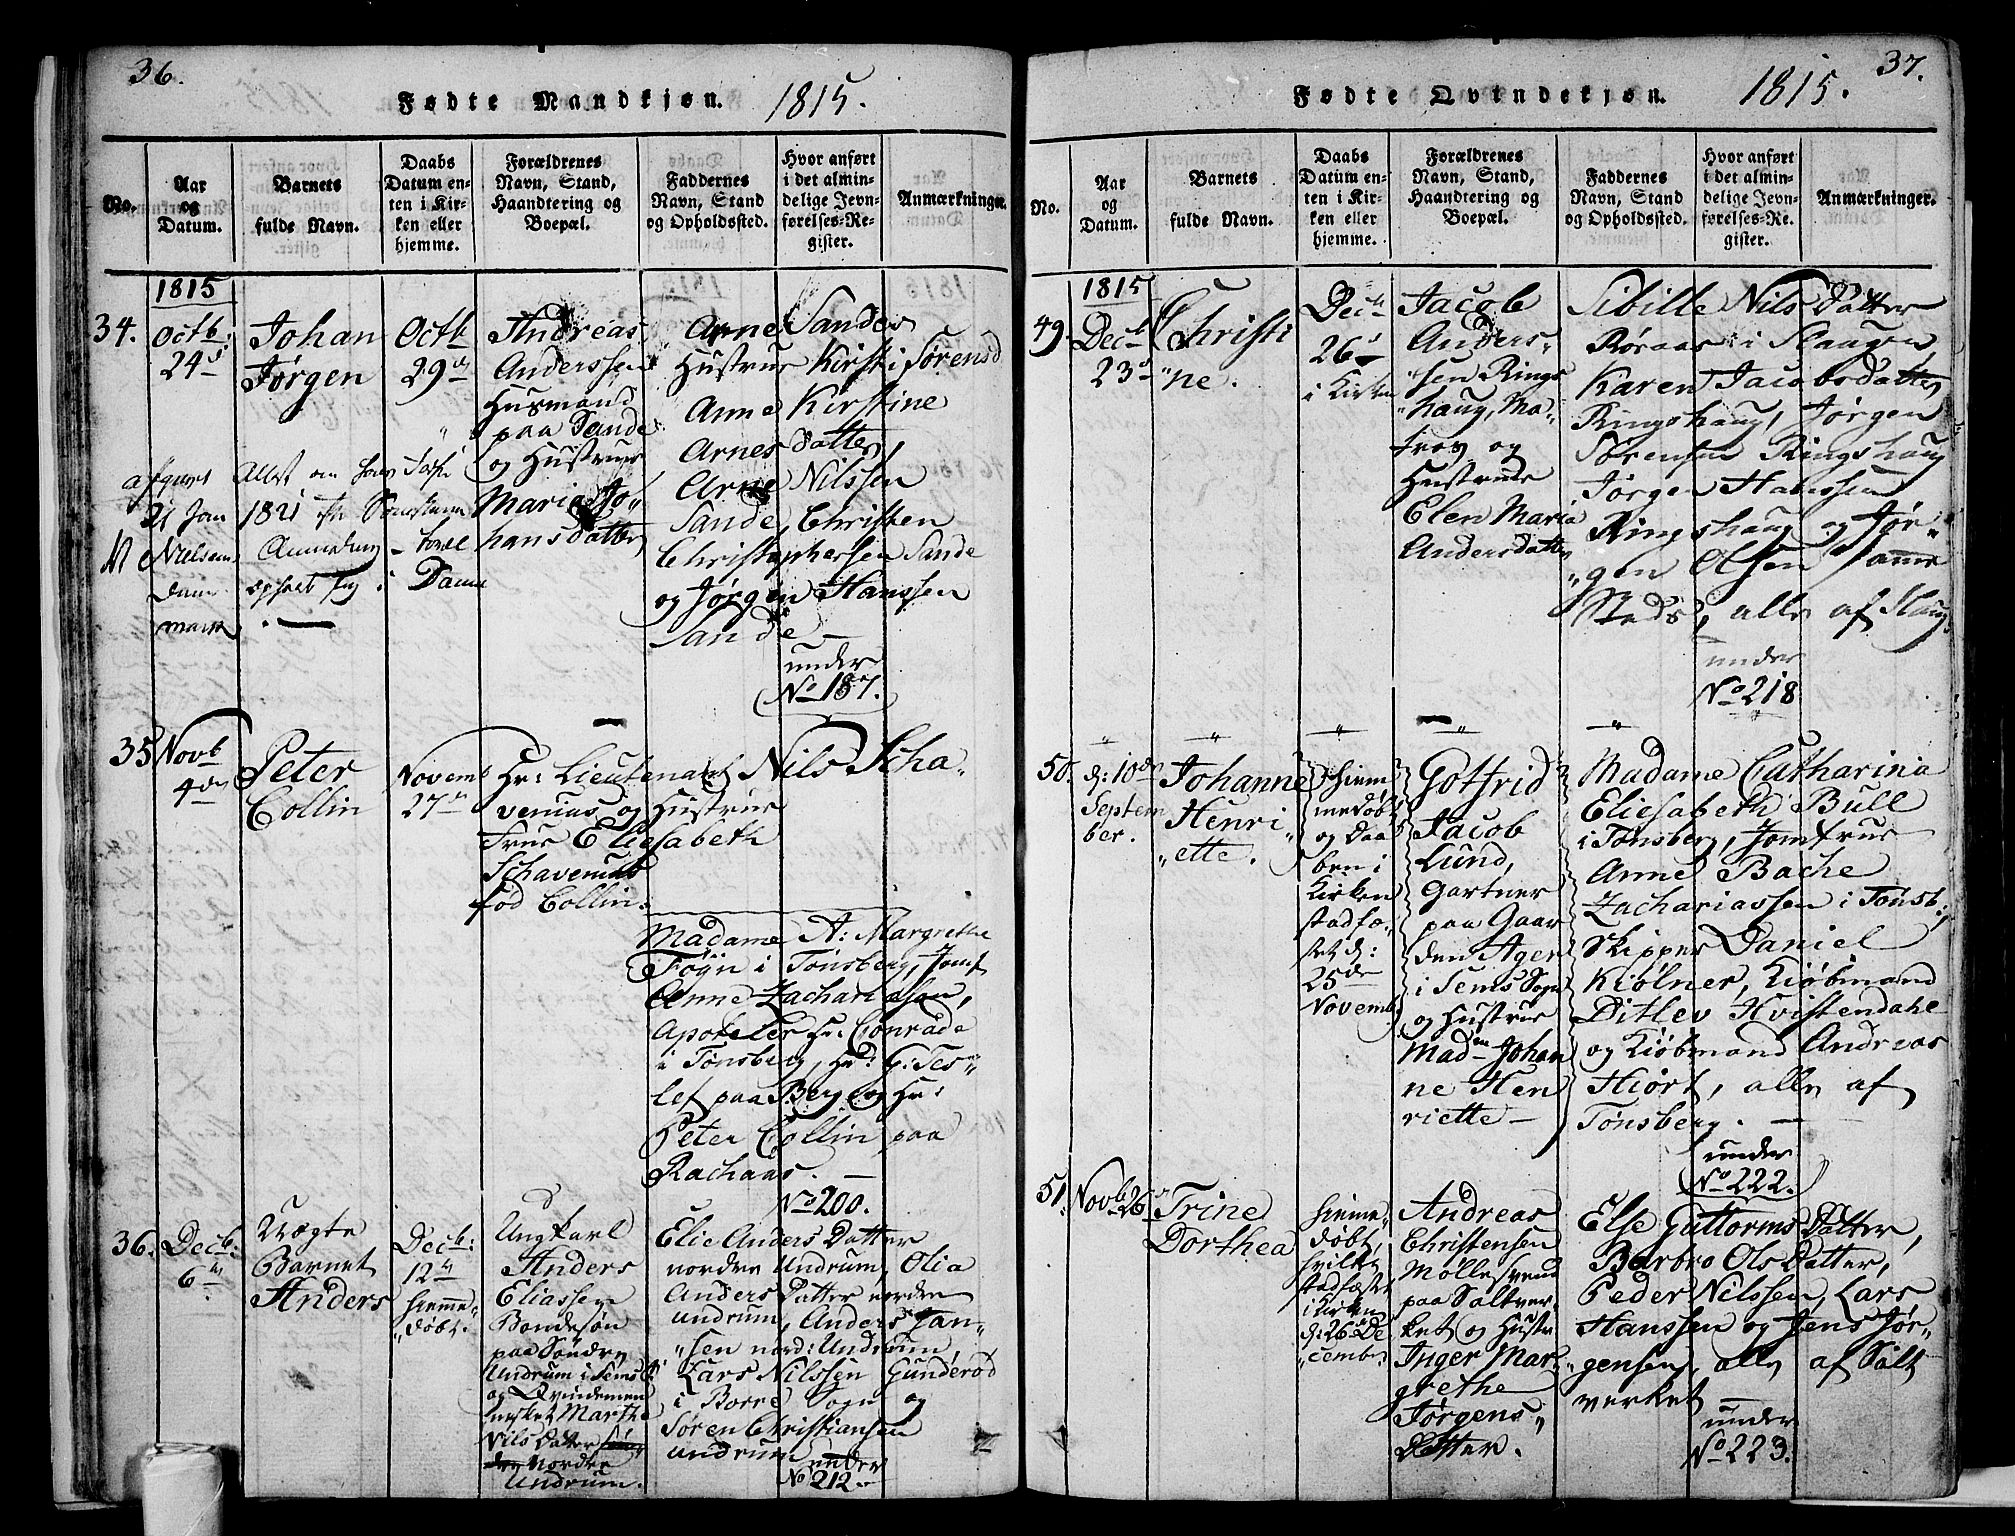 36.
Fødte Mandkjøn. 1815.
No.
Aar
og
Datum.
Barnets
fulde Navn.
Daabs
Datum en-
ten i Kir-
ken eller
hjemme.
Forældrenes
Navn, Stand,
Haandtering og
Boepæl.
Faddernes
Navn, Stand
og Opholdssted.
Hvor anført
i det almin-
delige Jevn-
førelses-Re-
gister.
Anmærkninger.
1815
34.
Octb:
24
Johan
Jørgen
Octb
29
Andreas
Anderssen
Husmand
paa Sande
og Hustrue
Maria Jo,,
hansdatter
Arne Sande,
Hustrue Kirsti Sørensd
Anne Kirstine
Arnes datter,
Arne Nilssen
Sande, Christen
Christophersen Sande
og Jørgen Hanssen
Sande
under
No 187.
21 Jan 1821
35
Novb
4
Peter
Collin
Novemb
27
Hr: Lieutenant Nils Scha-
venius og Hustrue
Frue Eliesabeth
Schavenius
fød Collin.
Madame A: Margrethe
Føyn i Tønsberg, Jomf
Anne Zachariasen,
Apoteker Hr: Conrade
i Tønsberg, Hr: G: Tes-
lef paa Berg og Hr:
Peter Collin paa
Rachaas.
No 200.
36.
Decb:
6
Uægte
Barnet
Anders
Decb:
12
hjemme-
døbt.
Ungkarl
Anders
Eliassen
Bondesøn
paa Søndre
Undrum i Sems S:
og Qvindemen
nesket Marthe
Nils Datter
Nordre
Undrum.
Elie Anders Datter
nordre Undrum, Olia
Anders Datter nordre
undrum, Anders Jan-
sen nord: Undrum,
Lars Nilssen Gunderød
i Borre Sogn og
Søren Christiansen
undrum
under
No 212.
37.
Fødte Qvindekjøn. 1815.
No.
Aar
og
Datum.
Barnets
fulde Navn.
Daabs
Datum en-
ten i Kir-
ken eller
hjemme.
Forældrenes
Navn, Stand,
Haandtering og
Boepæl.
Faddernes
Navn, Stand
og Opholdssted.
Hvor anført
i det almin-
delige Jevn-
førelses-Re-
gister.
Anmærkninger.
1815
49.
Decb
23
Christi
ne.
Dec
26
i Kirken
Jacob
Anders-
sen Rings
haug, Ma-
tros og
Hustrue
Elen Maria
Andersdatter
Sibille Nils Datter
Røraas i Slaugen
Karen Jacobsdatter
Ringshaug, Jørgen
Sørensen Ringshaug
Jørgen Hanssen
Ringshaug og Jør-
gen Olsen samme
Steds, alle af Slaug
under
No 218
50.
d: 10de
Septem
ber.
Johanne
Henri
ette.
hjem
medøbt
og Daa
ben i
Kirken
stadfæ-
stet d:
25de
Novemb.
Gotfrid
Jacob
Lund,
Gartner
paa Gaar
den Ager
i Sems Sogn
og Hustrue
Mad Johan
ne Hen
riette
Madame Catharina
Eliesabeth Bull
i Tønsberg, Jomfrue
Anne Bache
Zachariassen i Tønsb:,
Skipper Daniel
Kiølner, Kiøbmand
Ditlev Hvistendahl
og Kiøbmand Andreas
Hiort, alle af
Tønsberg.
under
No 222.
51.
Novb 26
Trine
Dorthea
hjemme-
døbt,
hvilket
stadfæstet
i Kirken
d: 26 De
cember.
Andreas
Christensen
Møllesvend
paa Saltver
ket og Hustr
Inger Mar
grethe
Jørgens,,
Datter.
Else Guttorms Datter,
Barbro Ols Datter,
Peder Nilssen, Lars
Hanssen og Jens Jør,,
gensen, alle af Salt
verket
under
No 223.